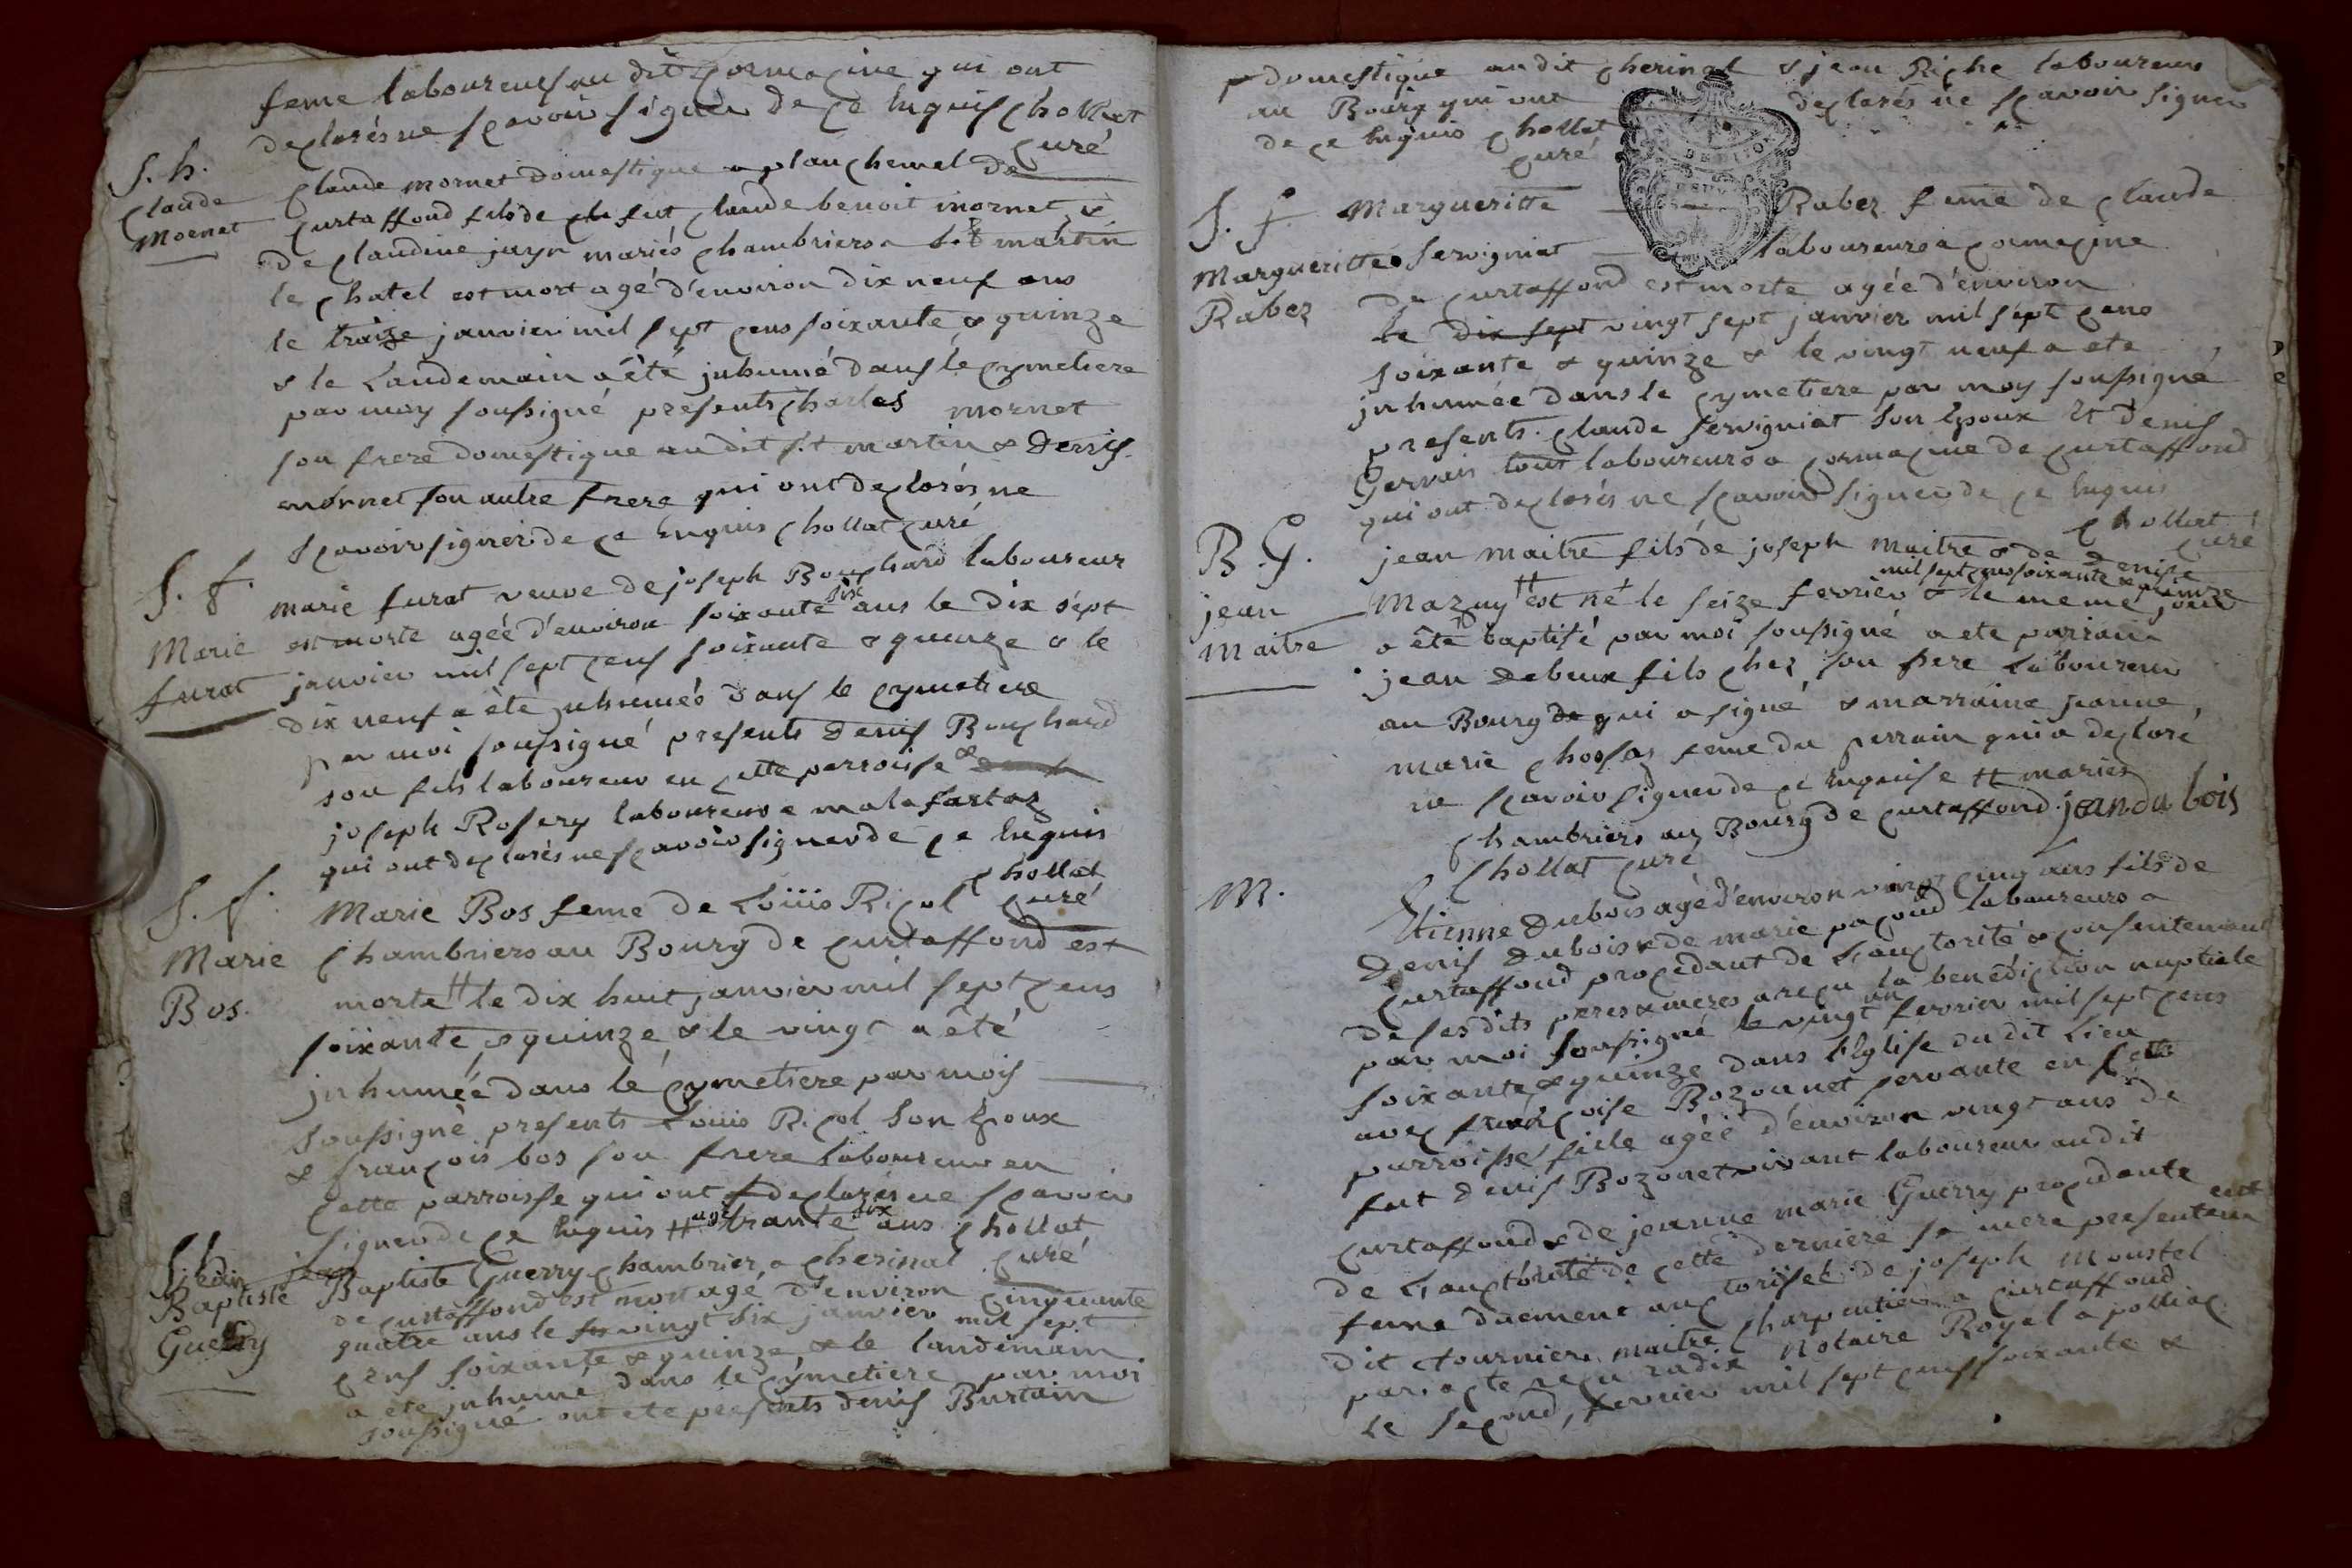 feme laboureurs au dit Cormacine qui ont
declarés ne scavoir signer de ce Enquis Chollat
curé
S. h.
Claude
Mornet
Claude mornet domestique a planchemel de
Curtaffond fils de feu Claude benoit mornet &
de Claudine jayr mariés Chambriers a St martin
le Chatel est mort agé d'environ dix neuf ans
le traize janvier mil sept cens soixante & quinze
& le Landemain a été jnhumé dans le cymetiere
par moy soussigné presents Charles mornet
son frere domestique au dit St martin & Denis
mornet son autre frere qui ont declarés ne
scavoir signer de ce Enquis Chollat curé
S. f.
Marie
furat
marie furat veuve de joseph Bouchard laboureur
est morte agée d'environ soixante six ans le dix sept
janvier mil sept cens soixante & quinze & le
dix neuf a été jnhumés dans le cymetiere
par moi soussigné presents Denis Bouchard
son fils laboureur en cette parroisse &
joseph Rosery laboureur a malafartaz
qui ont declarés ne scavoir signer de ce Enquis
Chollat
curé
S. f.
Marie
Bos.
Marie Bos feme de Loüis Ricol
Chambriers au Bourg de Curtaffond est
morte # le dix huit janvier mil sept cens
soixante & quinze & le vingt a été
jnhumée dans le cymetiere par moi
soussigné presents Louis Ricol Son Epoux
& françois bos son frere laboureur en
Cette parroisse qui ont declarés ne scavoir
signer de ce Enquis # agé trante six ans Chollat
curé
S. h.
jean
Baptiste
Guerry
jean
Baptiste Guerry Chambrier a Cherinal
de curtaffond est mort agé d'environ Cinquante
quatre ans le vingt six janvier mil sept
cens soixante & quinze & le landemain
a été jnhumé dans le cymetiere par moi
soussigné ont été presents denis Burtain
domestique au dit Cherinal & jean Riche laboureur
au Bourg qui ont declarés ne scavoir signer
de ce Enquis Chollat
curé
S. f.
Margueritte
Rabez
Margueritte Rabez feme de Claude
Servigniat laboureurs a Cormacine
de Curtaffond est morte agée d'environ
le dix sept vingt sept janvier mil sept cens
soixante & quinze & le vingt neuf a été
jnhumée dans le cymetiere par moy soussigné
presents Claude Servigniat son Epoux Et Denis
Gervais tous laboureurs a Cormacine de Curtaffond
qui ont declarés ne scavoir signer de ce Enquis
Chollat
curé
B. G.
jean
Maitre
jean maitre fils de joseph maitre & de Denise
mil sept cens soixante & quinze
Mazuy # est né le seize fevrier & le meme jour
a été baptisé par moi soussigné a ete parrain
jean debuux fils Chez son pere Laboureur
au Bourg de qui a signé & marraine jeanne
marie Chossaz feme du parrain qui a declaré
ne scavoir signer de ce Enquise # mariés
Chambriers au Bourg de Curtaffond jean du bois
Chollat curé
M.
Etienne Dubois agé d'environ vingt cinq ans fils de
Denis Dubois & de marie pacoud laboureurs a
Curtaffond procedant de L'auctorité & consentement
de ses dits peres & meres a reçu la benediction nuptiale
par moi soussigné le vingt un fevrier mil sept cens
soixante & quinze dans l'Eglise du dit Lieu
avec françoise Bozonnet servante en cette
parroisse fille agée d'environ vingt ans de
fut Denis Bozonet vivant laboureur au dit
Curtaffond & de jeanne marie Guerry procedante
de L'auctorité de cette derniere sa mere presentement
feme duement auctorisée de joseph Moustel
dit tournier maitre Charpentier a curtaffond
par acte reçu radix Notaire Royal a polliac
Le second, fevrier mil sept cens soixante &